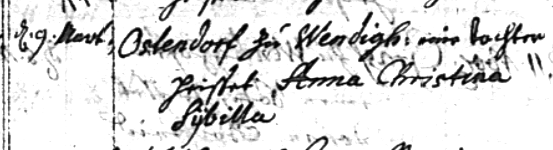 d. 9. Nov. Ostendorf zu Wendigh: eine tochter
heisset Anna Christina
Sÿbilla